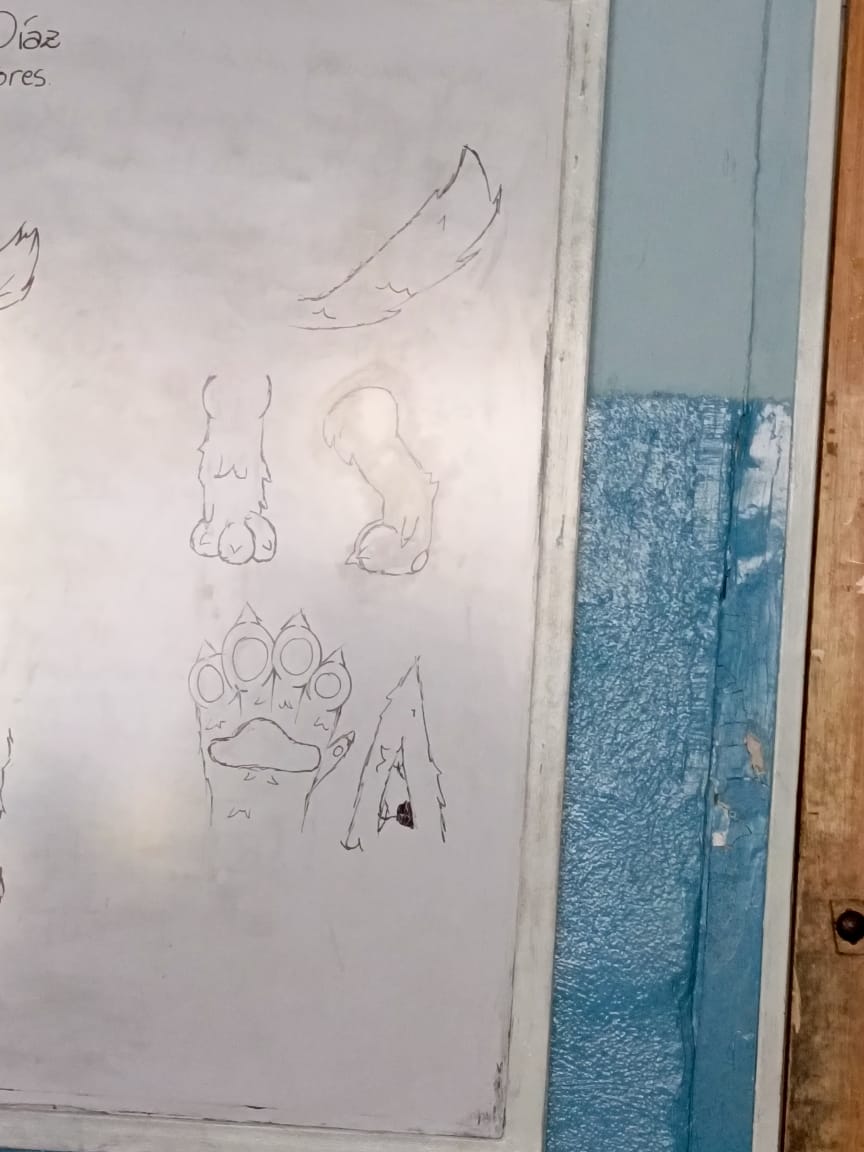 Díaz
ores.